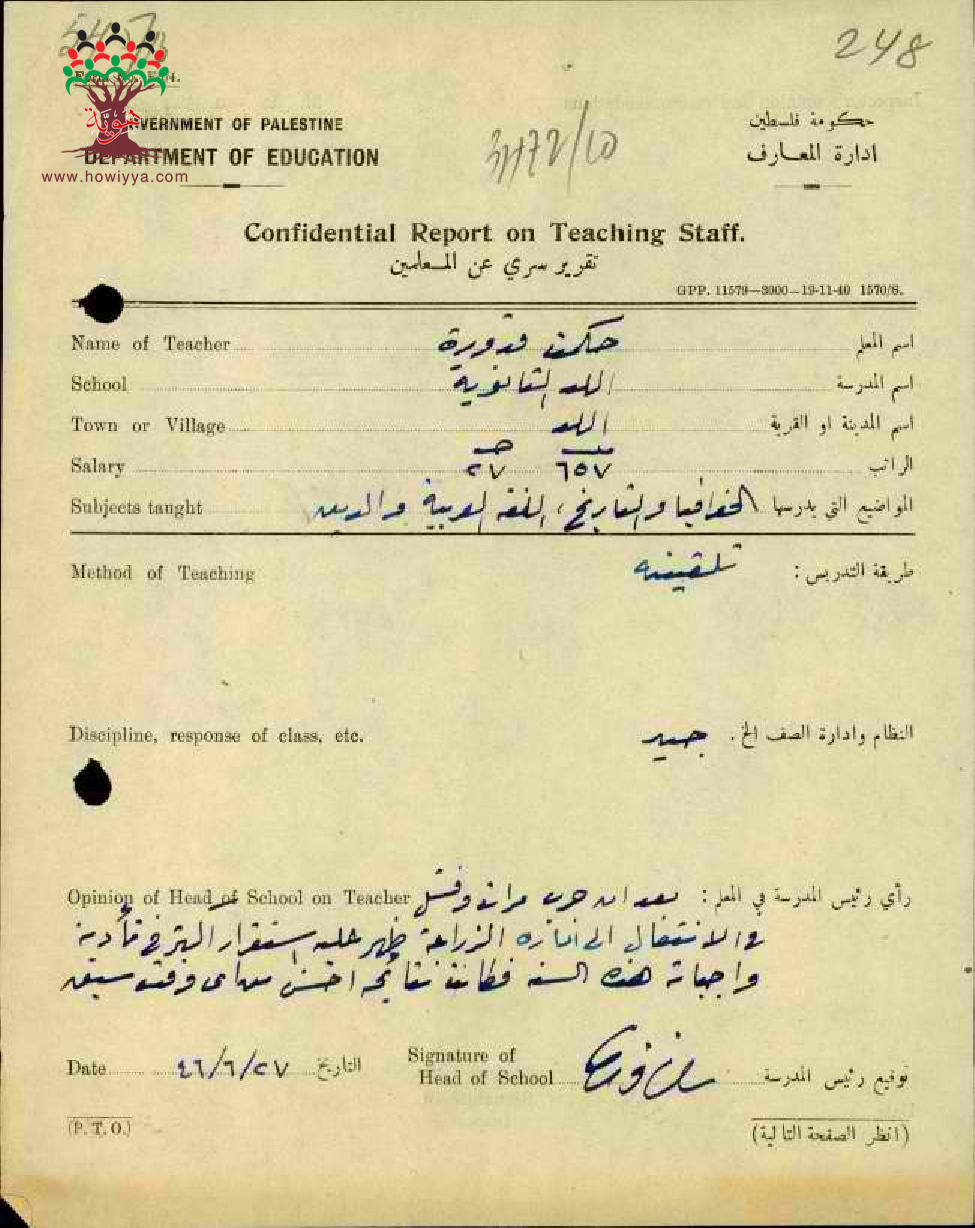 248
GOVERNMENT OF PALESTINE
DEPARTMENT OF EDUCATION
حكومة فلسطين
ادارة المعارف
هوية
www.howiyya.com
Confidential Report on Teaching Staff.
تقرير سري عن المعلمين
GPP. 11579—3000—19-11-40 1570/S.
Name of Teacher حكمت قدورة اسم المعلم
School اللد الثانوية اسم المدرسة
Town or Village اللد اسم المدينة او القرية
Salary ٦٥٧ ٢٧ الراتب
Subjects taught الجغرافيا والتاريخ، اللغة العربية والدين المواضيع التي يدرسها
Method of Teaching تلقينه طريقة التدريس :
Discipline, response of class, etc. جيد النظام وادارة الصف الخ.
Opinion of Head of School on Teacher بعد ان جرب مرات وفشل رأي رئيس المدرسة في المعلم :
في الانتقال الى الزراعة ظهر عليه استقرار في تأدية
واجباته هذه السنة فكانت نتائجه احسن من اي وقت سبق
Date ٤٦/٦/٢٧ التاريخ
Signature of
Head of School توقيع رئيس المدرسة
(P. T. O.) (انظر الصفحة التالية)